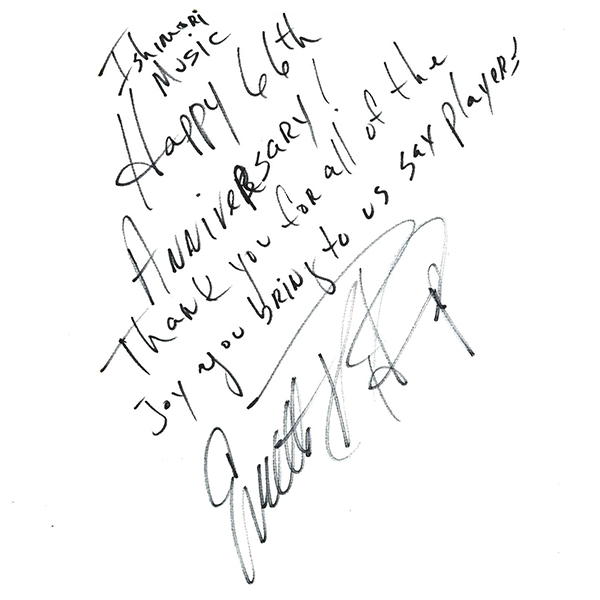 Ishimori
Music
Happy 66th
Anniversary!
Thank you for all of the
Joy you bring to us sax players